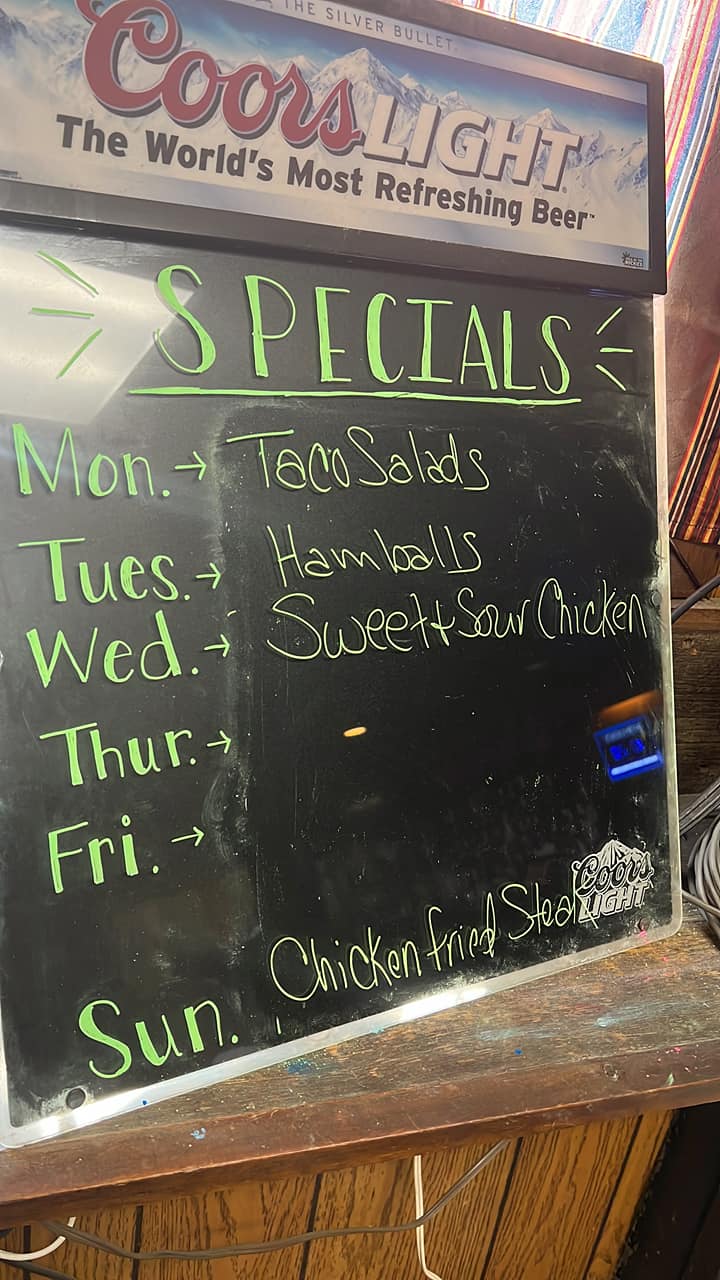 THE SILVER BULLET.
Coors LIGHT
The World's Most Refreshing Beer™
SPECIALS
Mon. → Taco Salads
Tues. → Hamballs
Wed. → Sweet + Sour Chicken
Thur. →
Fri. →
Chicken fried Steak
Sun.
Coors
LIGHT